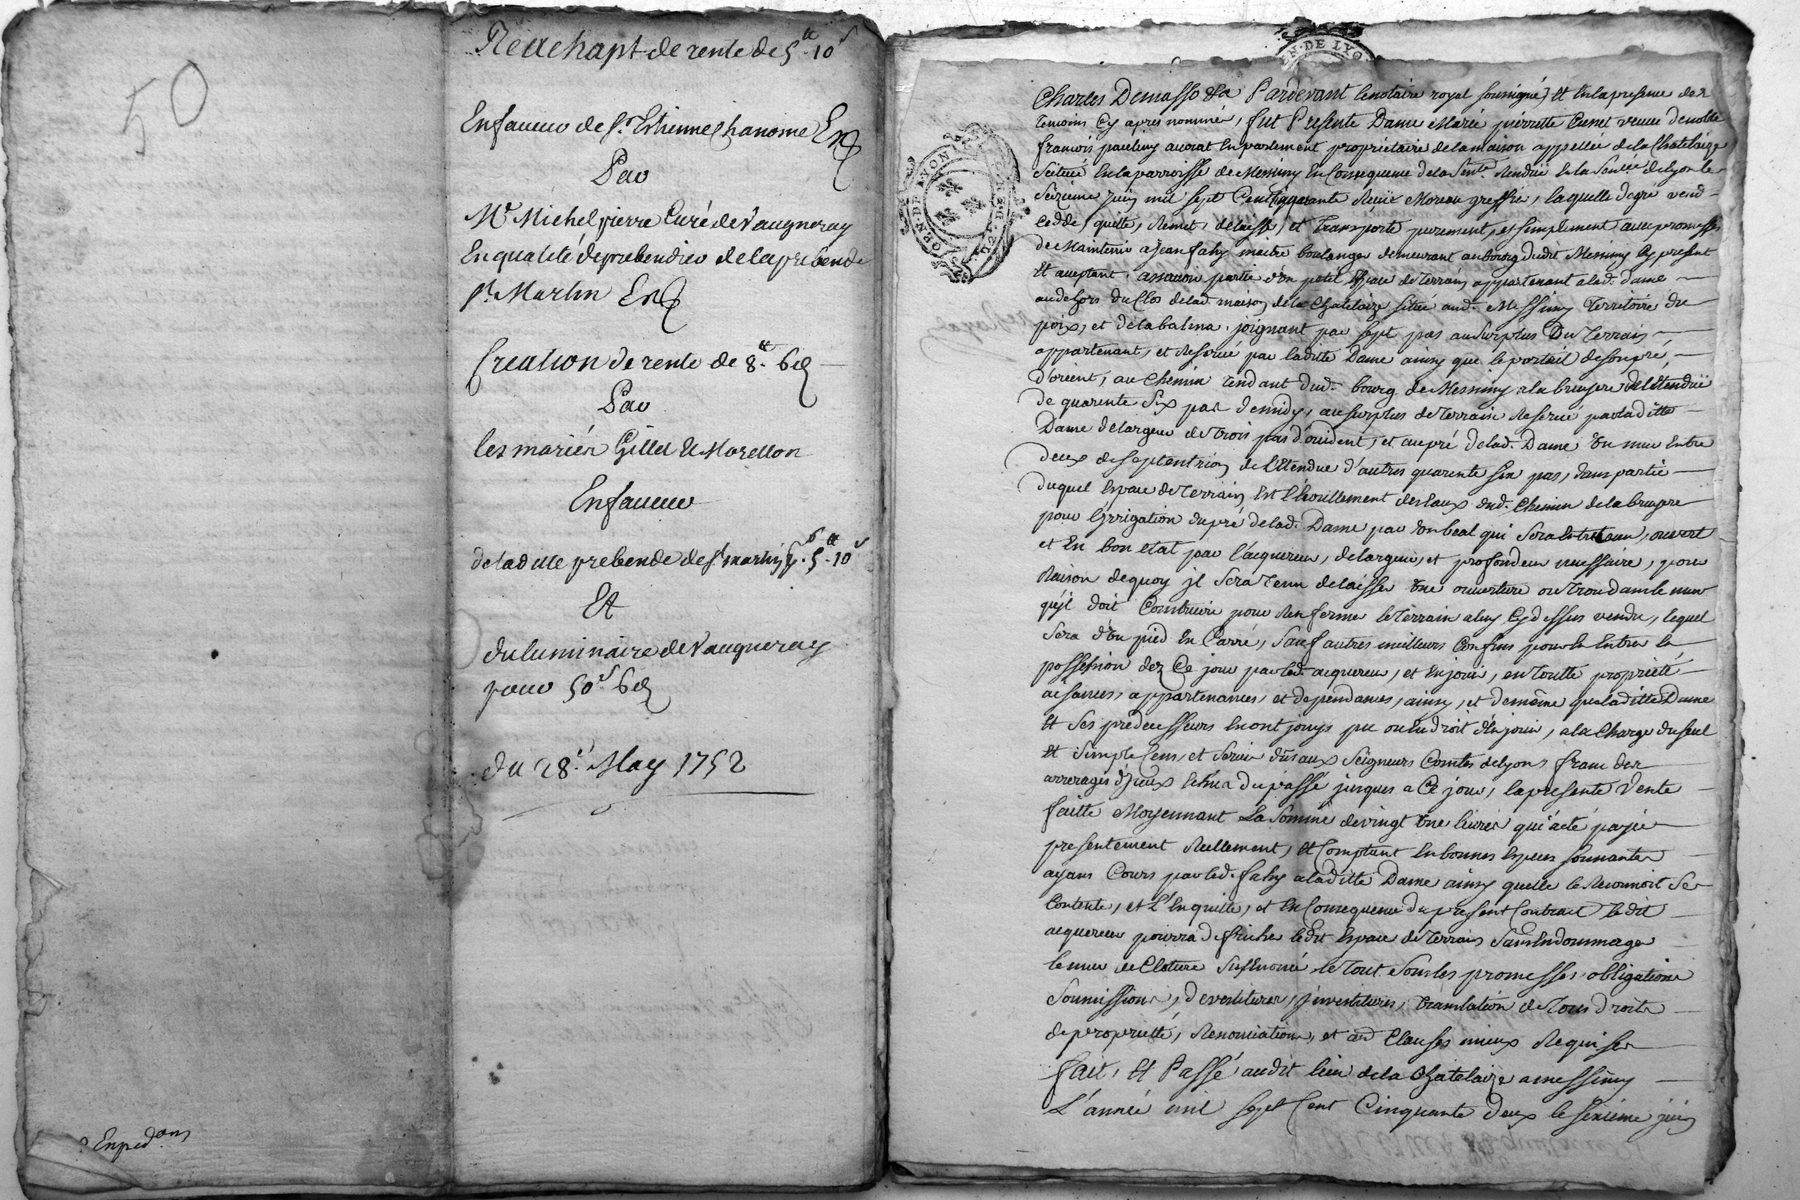 50
Reachapt de rente de 5ᵗᵗ 10ˢ
En faveur de Sʳ Etienne Chanorne Ex
Par
Mʳ Michel pierre Curé de Vaugneray
En qualité de prebendier de la prebende
Sᵗ Martin Ex
Creation de rente de 8ᵗᵗ 6d
Par
les mariés Gillet & Morellon
En faveur
de la ditte prebende de Sᵗ martin p. 5ᵗᵗ 10ˢ
Et
du luminaire de Vaugneray
pour 50ˢ 6d
du 28ᵉ May 1752
Exped.ᵒⁿˢ
GEN. DE LYO
GEN. DE LYON
Charles Demasso &a Pardevant le notaire royal soussigné, Et En la presence des
temoins Cy après nommés, fut Presente Dame Marie pierrette Cusset veuve de noble
francois paulimy avocat En parlement proprietaire de la maison appellée de la Chatelaize
Scitué En la parroisse de Messimy En Consequence de la Sent.ᵉ Rendüe En la Senéee de Lyon le
Seizieme juin mil sept Cent Cinquante Moreau greffier, laquelle de gré vend
Cedde, quitte, Remet, delaisse, et transporte purement, et simplement avec promesse
de Maintenir a Jean fahy maitre boulanger demeurant au bourg dudit Messimy Cy present
Et acceptant, assavoir partie d'un petit Espace de terrain appartenant a lad. dame
au dehors du Clos de lad. maison de la Chatelaize sittüé aud. Messimy territoire du
poix, et de la balma, joignant par sept pas au surplus Du terrain
appartenant, et Reservé par laditte Dame ainsy que le portail de son pré
d'orient, au Chemin tendant dud. bourg de Messimy a la bruyere de l'étendüe
de quarente Six pas de midy, au surplus de terrain Reservé par laditte
Dame de largeur de trois pas d'occident, et au pré de lad. Dame un mur Entre
deux de septentrion de L'étendue d'autres quarente six pas, dans partie
duquel Espace de terrain Est l'écoullement des Eaux dud. Chemin de la bruyere
pour L'irrigation du pré de lad. Dame par un beal qui sera Entretenu, ouvert
et En bon etat par l'acquereur, de largeur, et profondeur necessaire, pour
Raison de quoy jl sera tenu de laisser une ouverture ou trou dans le mur
qu'jl doit Construire pour Renfermer le terrain a luy Cy dessus vendu, lequel
sera d'un pied En Carré, Sauf autres meilleurs Confins pour En Entrer En
possession dez Ce jour par led. acquereur, et En jouir, en toutte proprieté
aisances, appartenances, et dependances, ainsy, et de même que laditte Dame
Et Ses predecesseurs En ont jouys pu ou En droit d'En jouir, a la Charge du seul
Et simple Cens, et Servis düs aux Seigneurs Comtes de Lyon, franc des
arrerages d'jceux du passé jusques a Ce jour, la presente Vente
faitte Moyennant La Somme de vingt une livres qui a été payée
presentement Reellement, Et Comptant En bonnes Especes sonnantes
ayans Cours par led. fahy a laditte Dame ainsy quelle le Reconnoit Se
Contente, et L'En quitte, et En Consequence du present Contract ledit
acquereur pourra defricher ledit Espace de terrain Sans Endommager
le mur de Cloture Susenoncé le tout Sous les promesses obligations
Soumissions, devestitures, jnvestitures, translation de tous droits
de proprieté, Renonciations, et aud Clauses mieux Requises
fait, Et Passé, audit lieu de la Chatelaize a messimy
L'année mil sept Cent Cinquante deux le sixieme juin